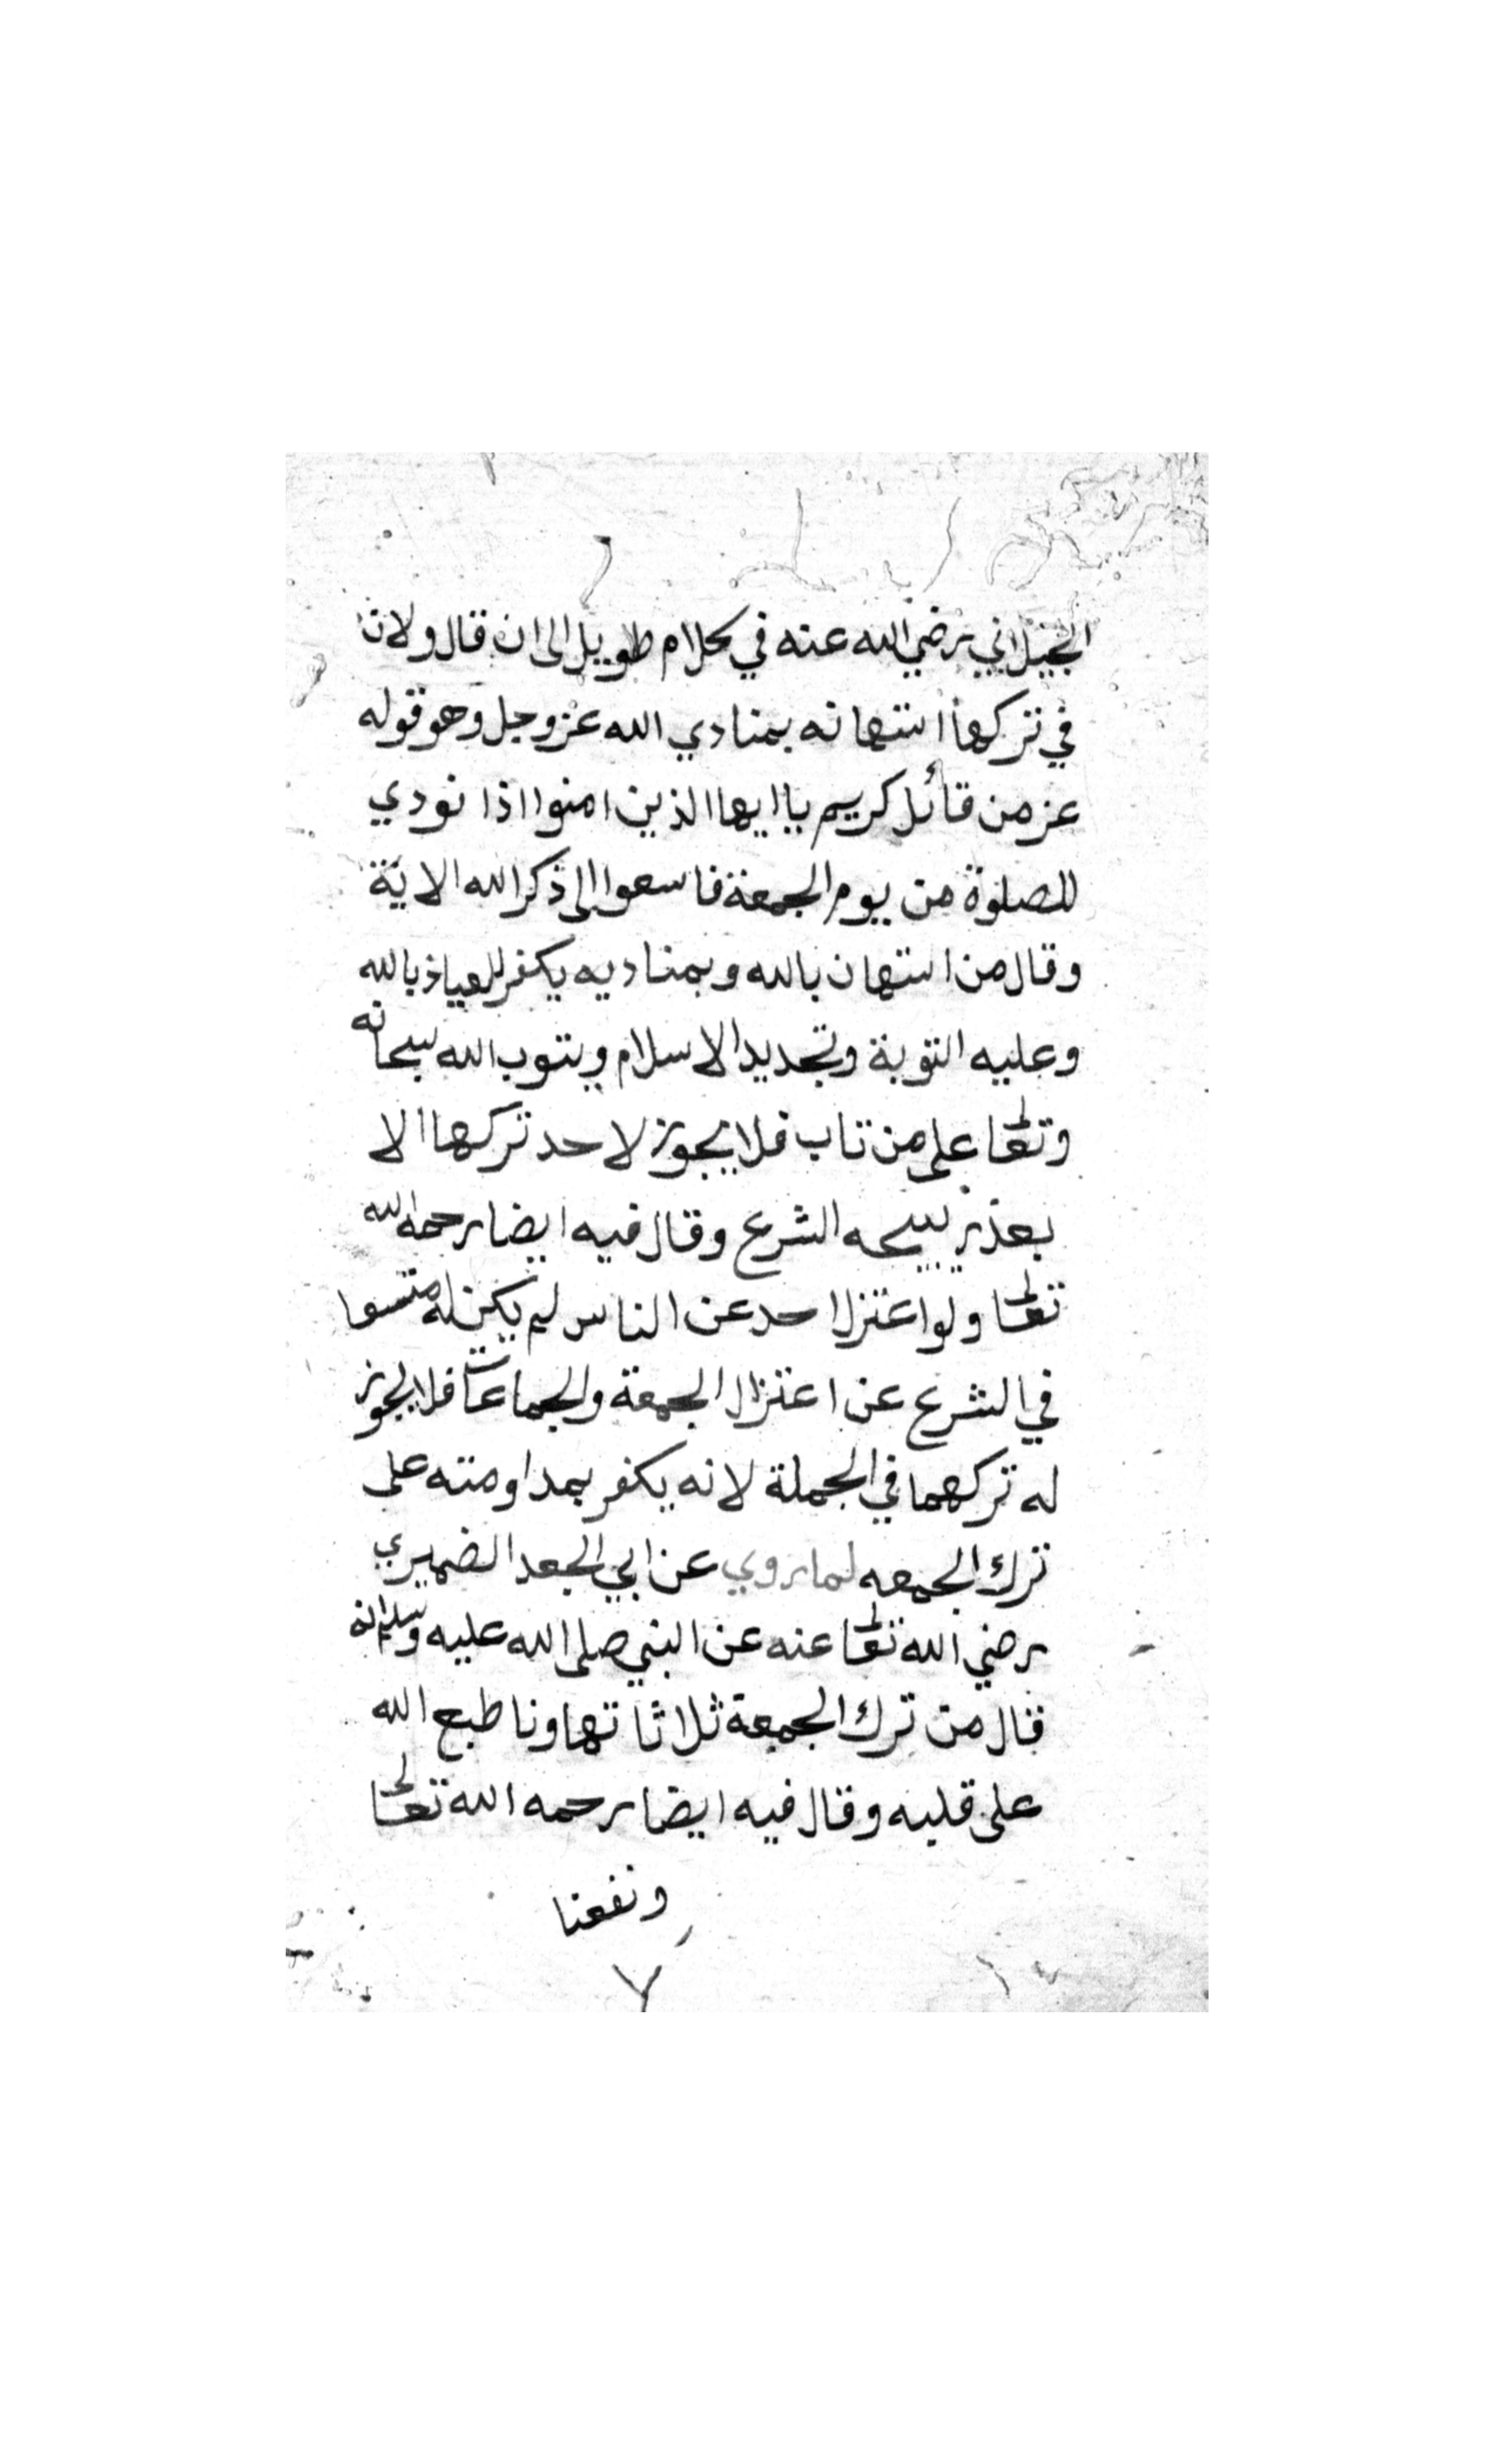 الجيلاني رضي الله عنه في كلام طويل الى ان قال ولان
في تركها استهانه بمنادي الله عز وجل وهو قوله
عز من قائل كريم ياايها الذين امنوا اذا نودي
للصلوة من يوم الجمعة فاسعوا الى ذكر الله الاية
وقال من استهان بالله وبمناديه يكفر للعياذ بالله
وعليه التوبة وتجديد الاسلام ويتوب الله سبحانه
وتعالى على من تاب فلا يجوز لاحد تركها الا
بعذر يبيحه الشرع وقال فيه ايضا رحمه الله
تعالى ولو اعتزل احد عن الناس لم يكن له متسعا
في الشرع عن اعتزال الجمعة والجماعات فلا يجوز
له تركهما في الجملة لانه يكفر بمداومته على
ترك الجمعه لما روي عن ابي الجعد الضميري
رضي الله تعالى عنه عن النبي صلى الله عليه وسلم انه
قال من ترك الجمعة ثلاثا تهاونا طبع الله
على قلبه وقال فيه ايضا رحمه الله تعالى
ونفعنا
٧